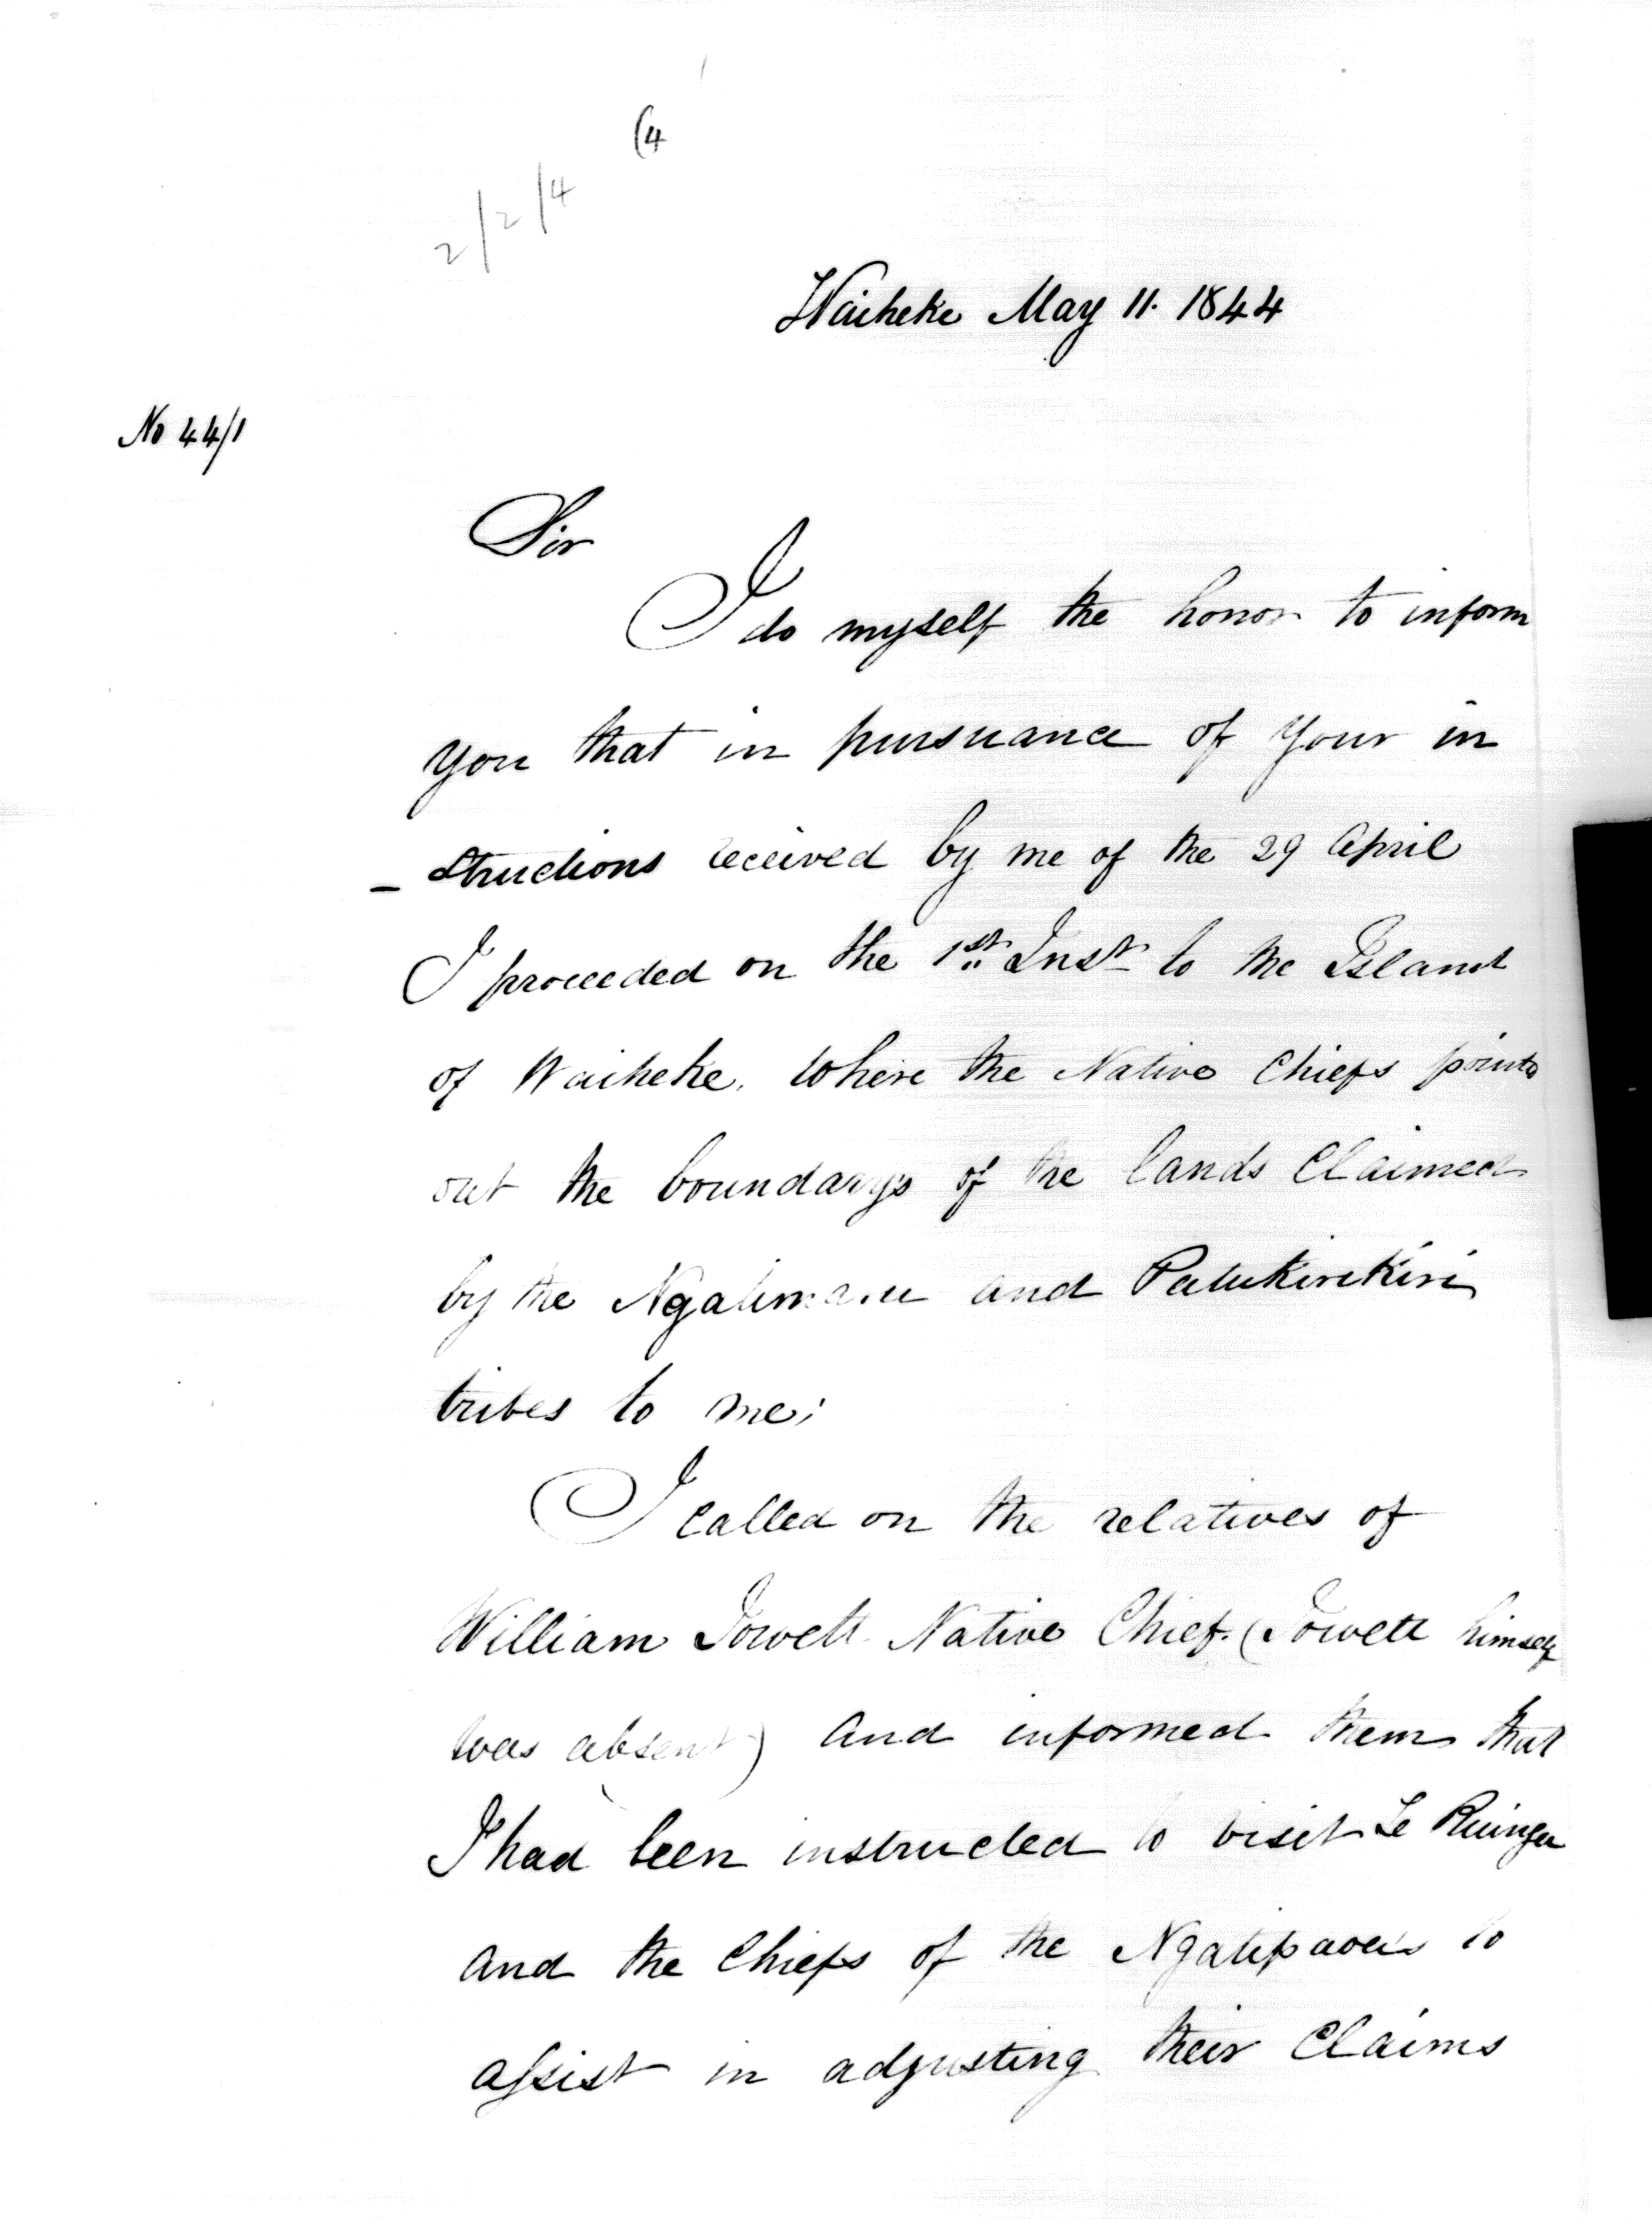 (4
2/2/4
Waiheke May 11. 1844
No 44/1
Sir
I do myself the honor to inform
you that in pursuance of your in
- structions received by me of the 29 April
I proceeded on the 1st Inst to the Island
of Waiheke. Where the Native Chiefs points
out the boundarys of the lands Claimed
by the Ngatimaru and Patukirikiri
tribes to me;
I called on the relatives of
William Jowett Native Chief. (Jowett himself
was absent) and informed them that
I had been instructed to visit Te Ruinga
and the Chiefs of the Ngatipaoa's to
assist in adjusting their Claims